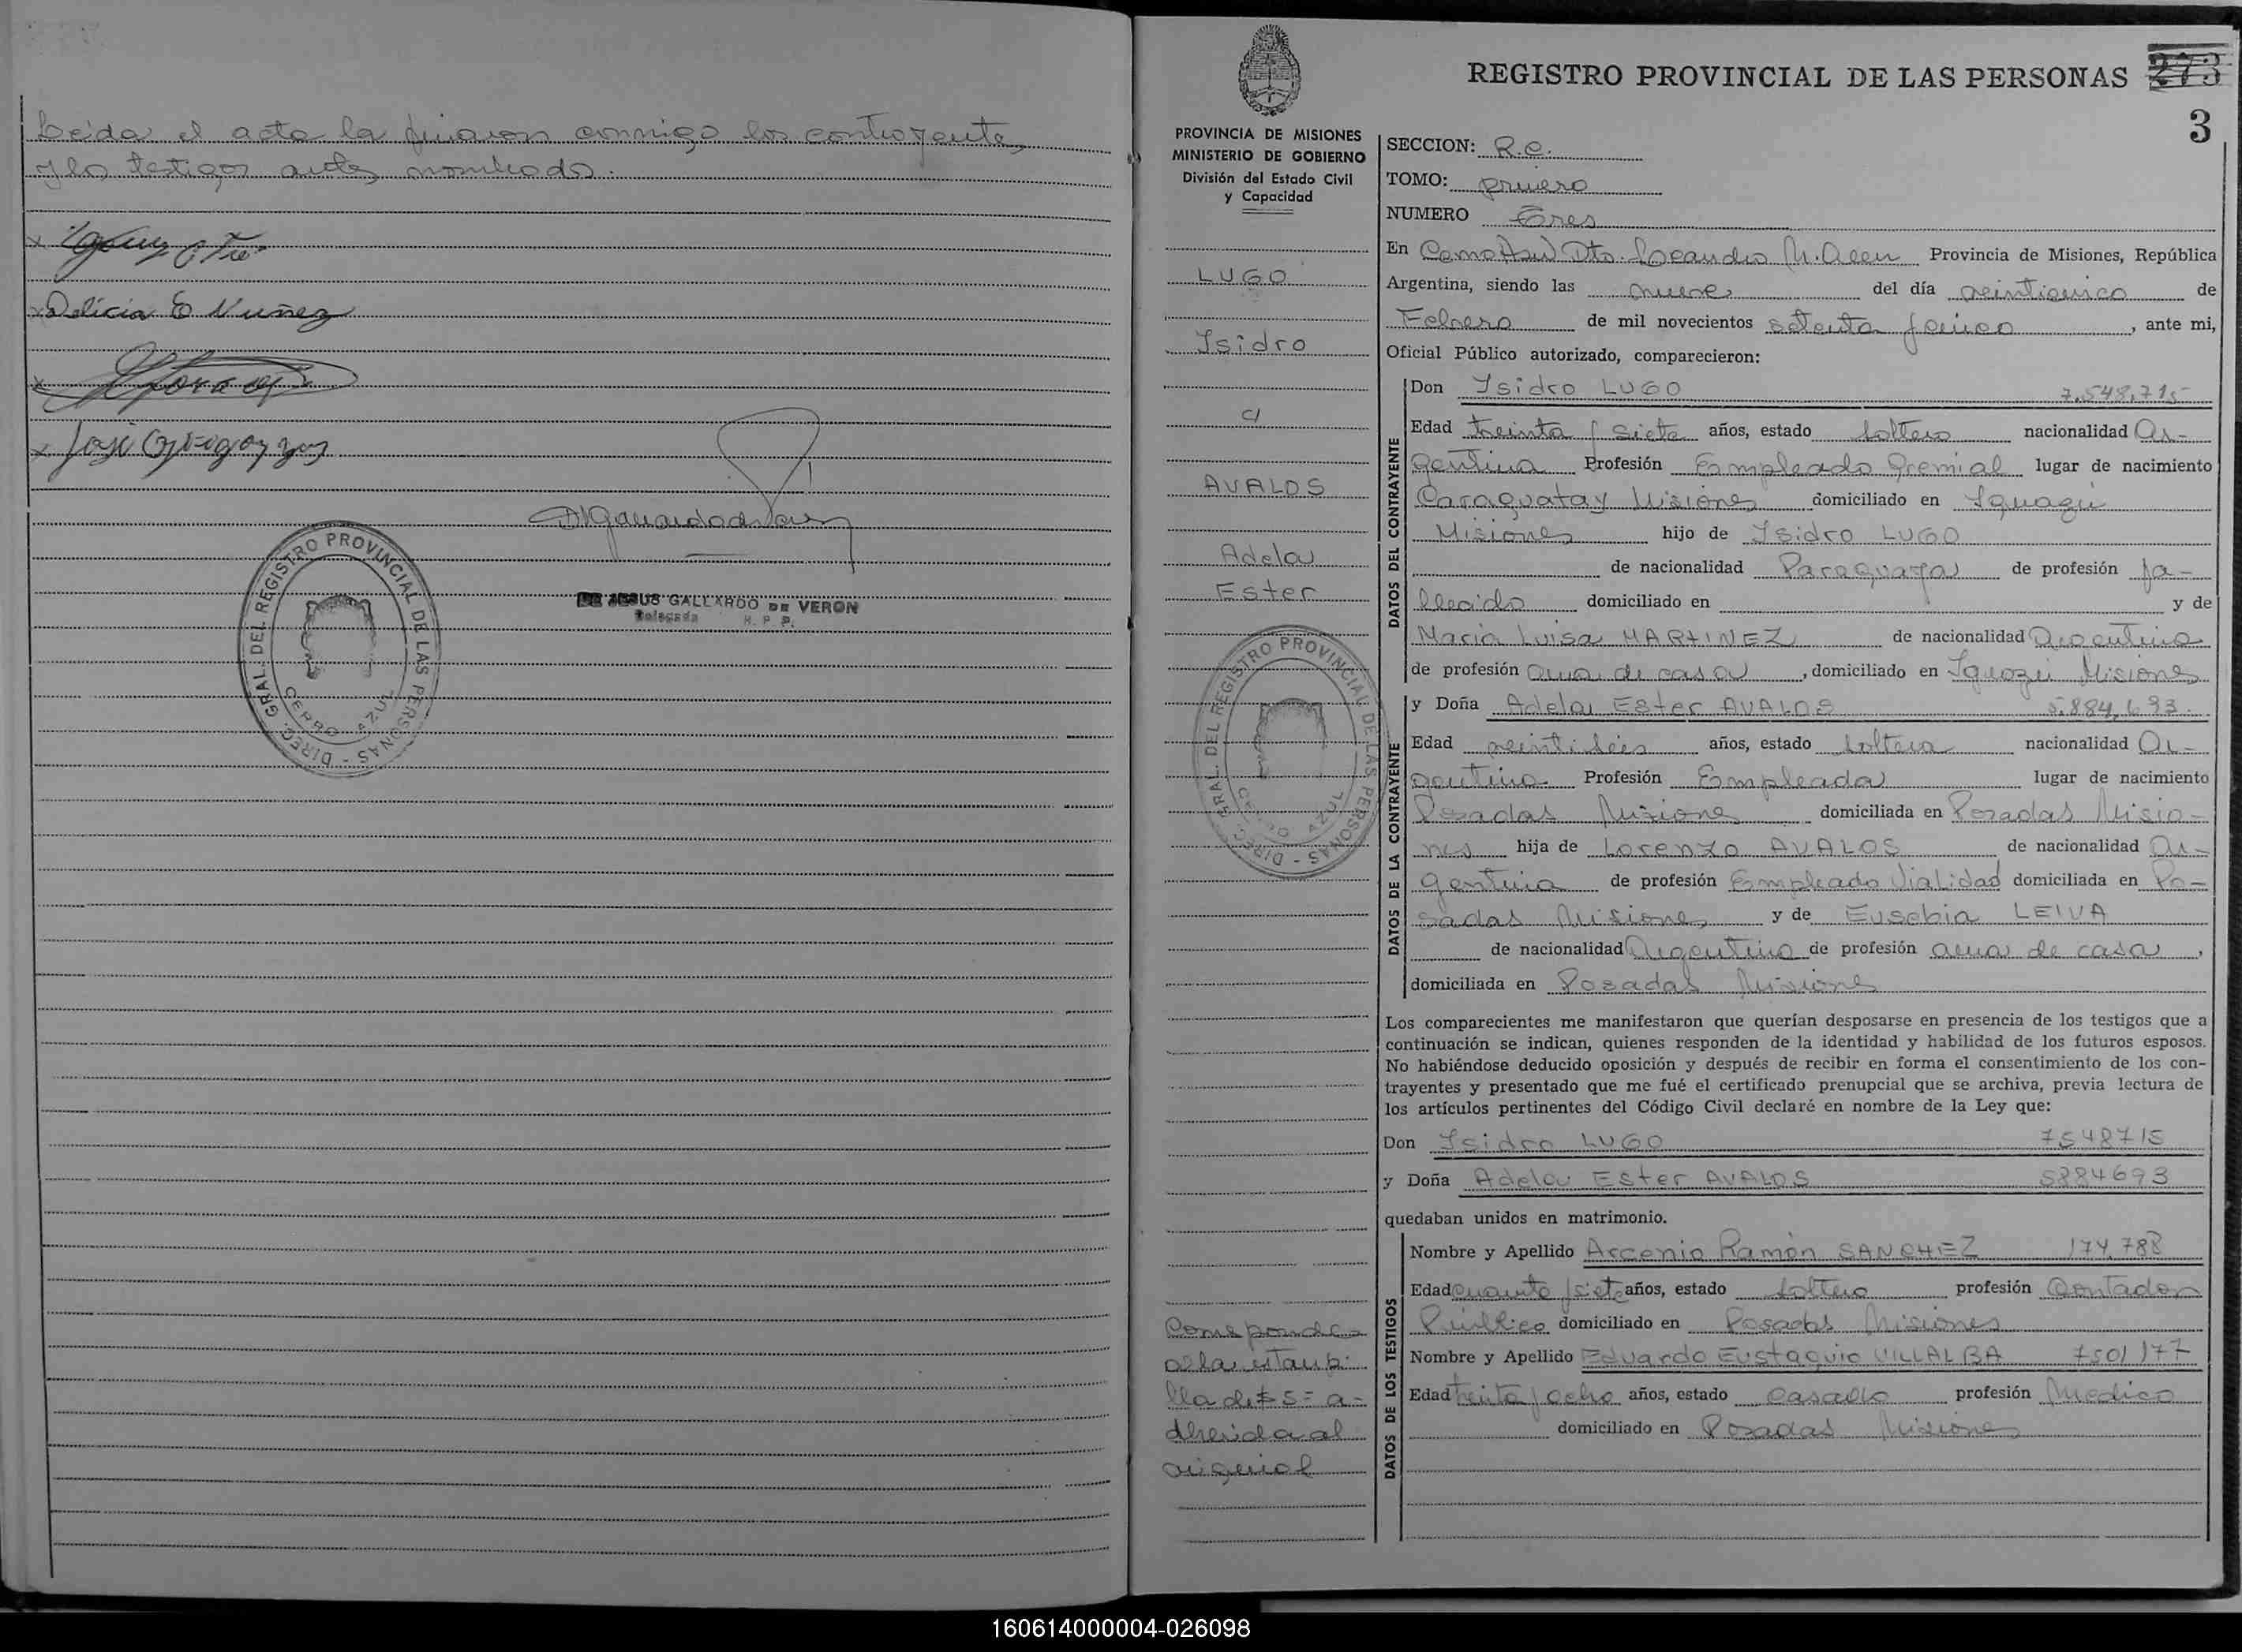 Leída el acta la firmaron conmigo los contrayentes
y los testigos antes nombrado.
Delicia E Nuñez
José
DE JESUS GALLARDO DE VERON
Delegada R. P. P.
DIREC. GRAL. DEL REGISTRO PROVINCIAL DE LAS PERSONAS -
CERRO AZUL
PROVINCIA DE MISIONES
MINISTERIO DE GOBIERNO
División del Estado Civil
y Capacidad
LUGO
Isidro
c/
AVALOS
Adela
Ester
DIREC. GRAL. DEL REGISTRO PROVINCIAL DE LAS PERSONAS -
CERRO AZUL
Corresponde
a la estampi
lla de $ 5= a-
dherida al
original
REGISTRO PROVINCIAL DE LAS PERSONAS 273
3
SECCION: R.C.
TOMO: primero
NUMERO Tres
En Cerro Azul Dto. Leandro N. Alem Provincia de Misiones, República
Argentina, siendo las nueve del día veinticinco de
Febrero de mil novecientos setenta y cinco, ante mi,
Oficial Público autorizado, comparecieron:
DATOS DEL CONTRAYENTE
Don Isidro LUGO 7.548.715
Edad treinta y siete años, estado soltero nacionalidad Ar-
gentina Profesión Empleado Gremial lugar de nacimiento
Caraguatay Misiones domiciliado en Iguazú
Misiones hijo de Isidro LUGO
de nacionalidad Paraguaya de profesión fa-
llecido domiciliado en y de
María Luisa MARTINEZ de nacionalidad Argentina
de profesión ama de casa, domiciliado en Iguazú Misiones
DATOS DE LA CONTRAYENTE
y Doña Adela Ester AVALOS 5.884.693.
Edad veintiséis años, estado soltera nacionalidad Ar-
gentina Profesión Empleada lugar de nacimiento
Posadas Misiones domiciliada en Posadas Misio-
nes hija de Lorenzo AVALOS de nacionalidad Ar-
gentina de profesión Empleado Vialidad domiciliada en Po-
sadas Misiones y de Eusebia LEIVA
de nacionalidad Argentina de profesión ama de casa,
domiciliada en Posadas Misiones
Los comparecientes me manifestaron que querían desposarse en presencia de los testigos que a
continuación se indican, quienes responden de la identidad y habilidad de los futuros esposos.
No habiéndose deducido oposición y después de recibir en forma el consentimiento de los con-
trayentes y presentado que me fué el certificado prenupcial que se archiva, previa lectura de
los artículos pertinentes del Código Civil declaré en nombre de la Ley que:
Don Isidro LUGO 7548715
y Doña Adela Ester AVALOS 5884693
quedaban unidos en matrimonio.
DATOS DE LOS TESTIGOS
Nombre y Apellido Arcenio Ramón SANCHEZ 174.788
Edad cuarenta y siete años, estado soltero profesión Contador
Público domiciliado en Posadas Misiones
Nombre y Apellido Eduardo Eustaquio VILLALBA 7501177
Edad treinta y ocho años, estado casado profesión Medico
domiciliado en Posadas Misiones
160614000004-026098